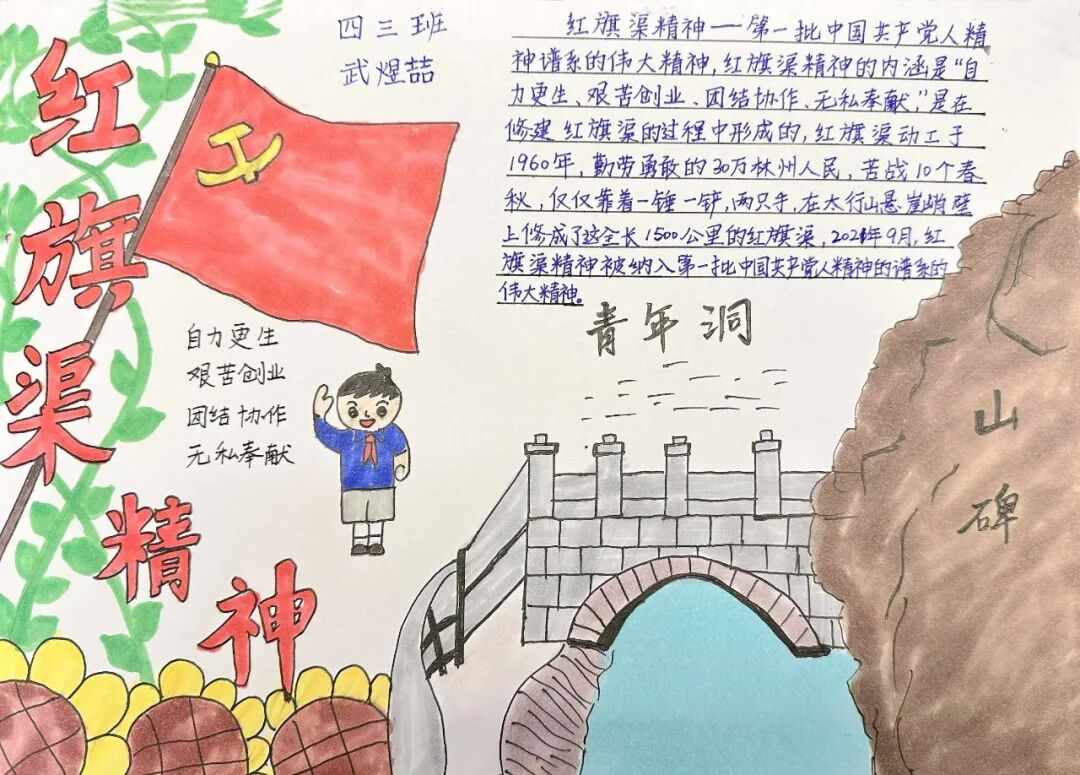 红旗渠精神
四三班
武煜喆
红旗渠精神——第一批中国共产党人精
神谱系的伟大精神,红旗渠精神的内涵是“自
力更生、艰苦创业、团结协作、无私奉献,”是在
修建红旗渠的过程中形成的,红旗渠动工于
1960年,勤劳勇敢的30万林州人民,苦战10个春
秋,仅仅靠着一锤一铲,两只手,在太行山悬崖峭壁
上修成了这全长1500公里的红旗渠,2021年9月,红
旗渠精神被纳入第一批中国共产党人精神的谱系的
伟大精神。
自力更生
艰苦创业
团结协作
无私奉献
青年洞
山碑